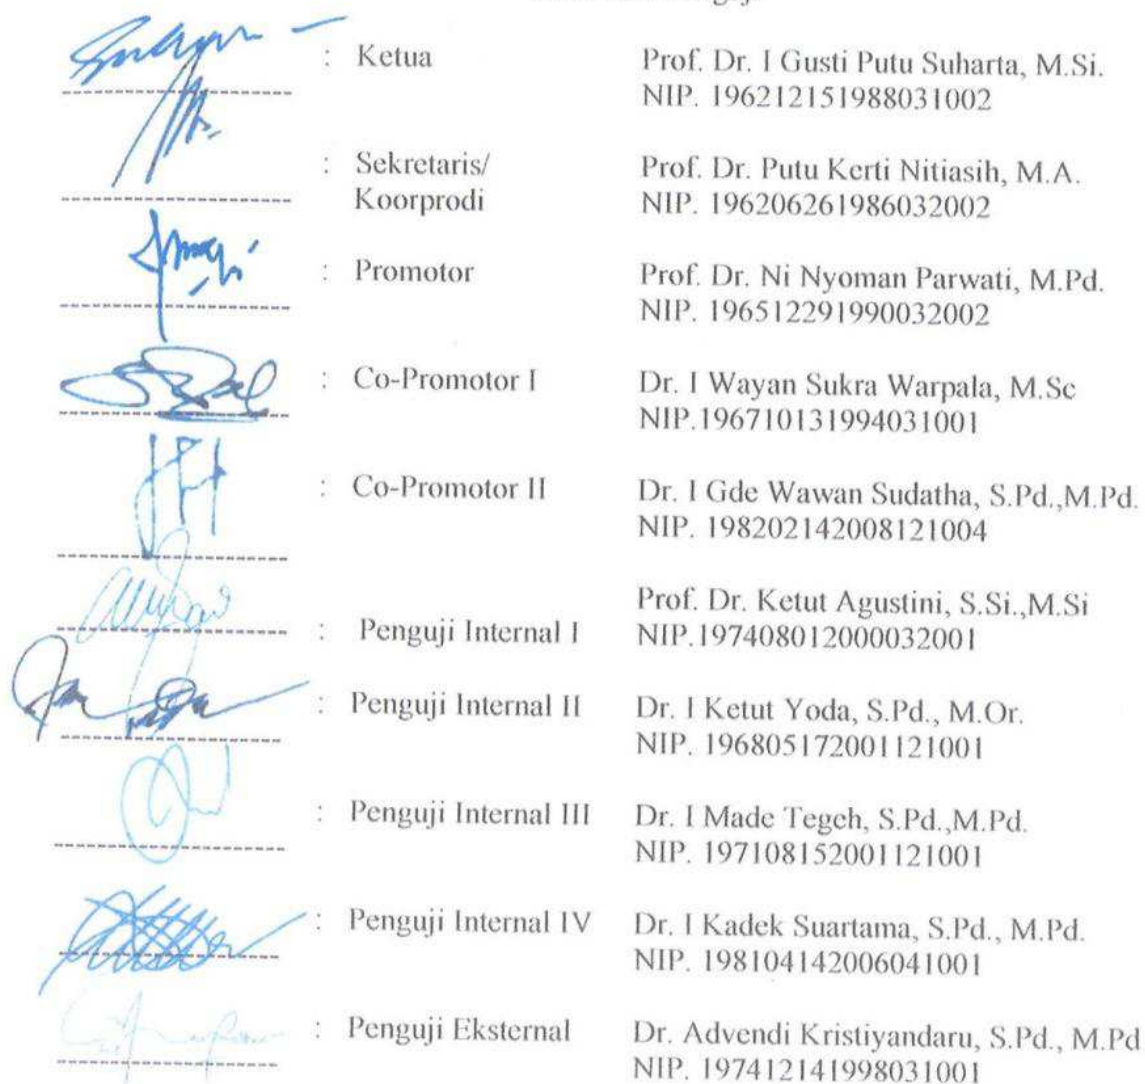 : Ketua Prof. Dr. I Gusti Putu Suharta, M.Si.
NIP. 196212151988031002
: Sekretaris/ Prof. Dr. Putu Kerti Nitiasih, M.A.
Koorprodi NIP. 196206261986032002
: Promotor Prof. Dr. Ni Nyoman Parwati, M.Pd.
NIP. 196512291990032002
: Co-Promotor I Dr. I Wayan Sukra Warpala, M.Sc
NIP.196710131994031001
: Co-Promotor II Dr. I Gde Wawan Sudatha, S.Pd.,M.Pd.
NIP. 198202142008121004
Prof. Dr. Ketut Agustini, S.Si.,M.Si
: Penguji Internal I NIP.197408012000032001
: Penguji Internal II Dr. I Ketut Yoda, S.Pd., M.Or.
NIP. 196805172001121001
: Penguji Internal III Dr. I Made Tegeh, S.Pd.,M.Pd.
NIP. 197108152001121001
: Penguji Internal IV Dr. I Kadek Suartama, S.Pd., M.Pd.
NIP. 198104142006041001
: Penguji Eksternal Dr. Advendi Kristiyandaru, S.Pd., M.Pd
NIP. 197412141998031001